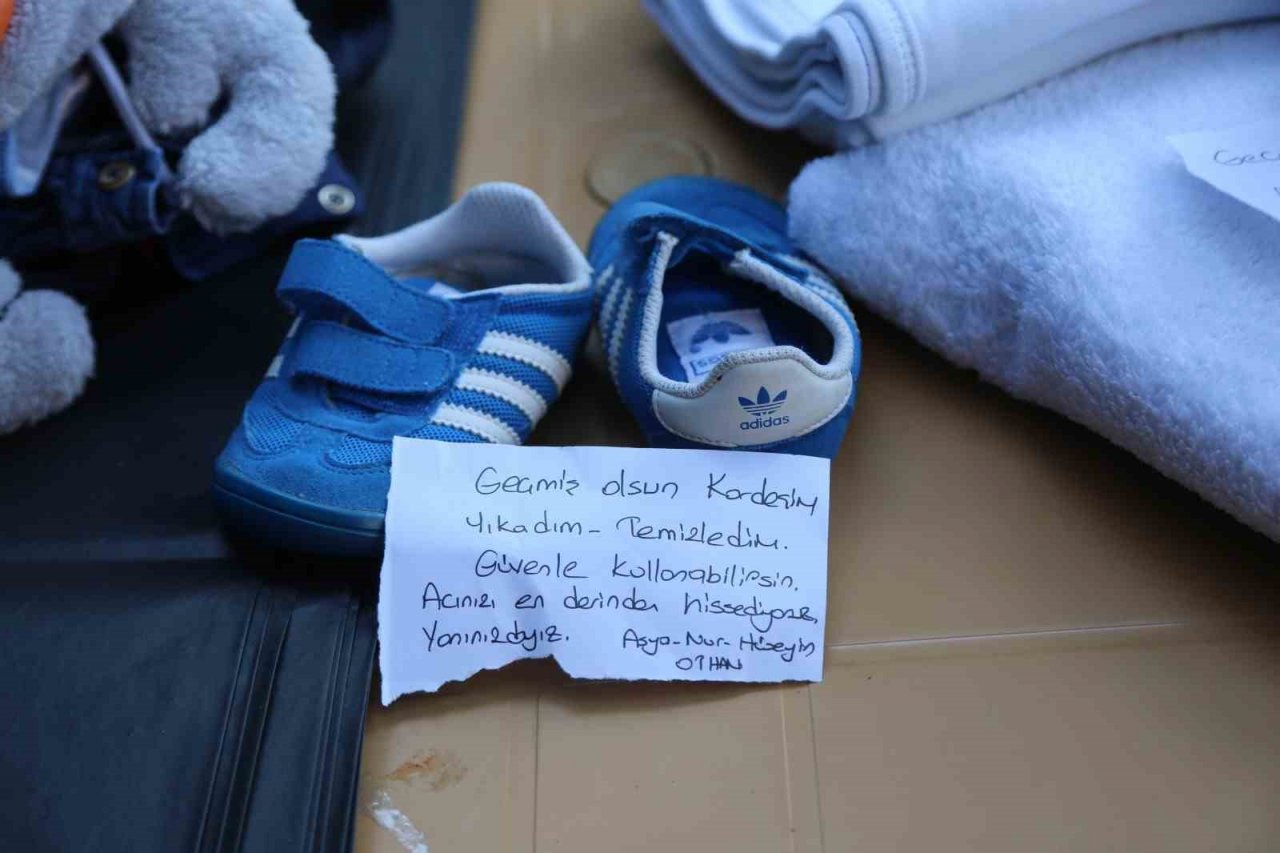 adidas
Geçmiş olsun Kardeşim
Yıkadım - Temizledim.
Güvenle kullanabilirsin.
Acınızı en derinden hissediyoruz,
Yanınızdayız. Asya-Nur-Hüseyin
OTHAN